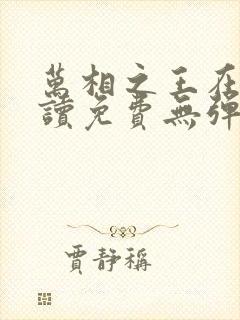 萬相之王在
讀免費無彈
賈靜稱